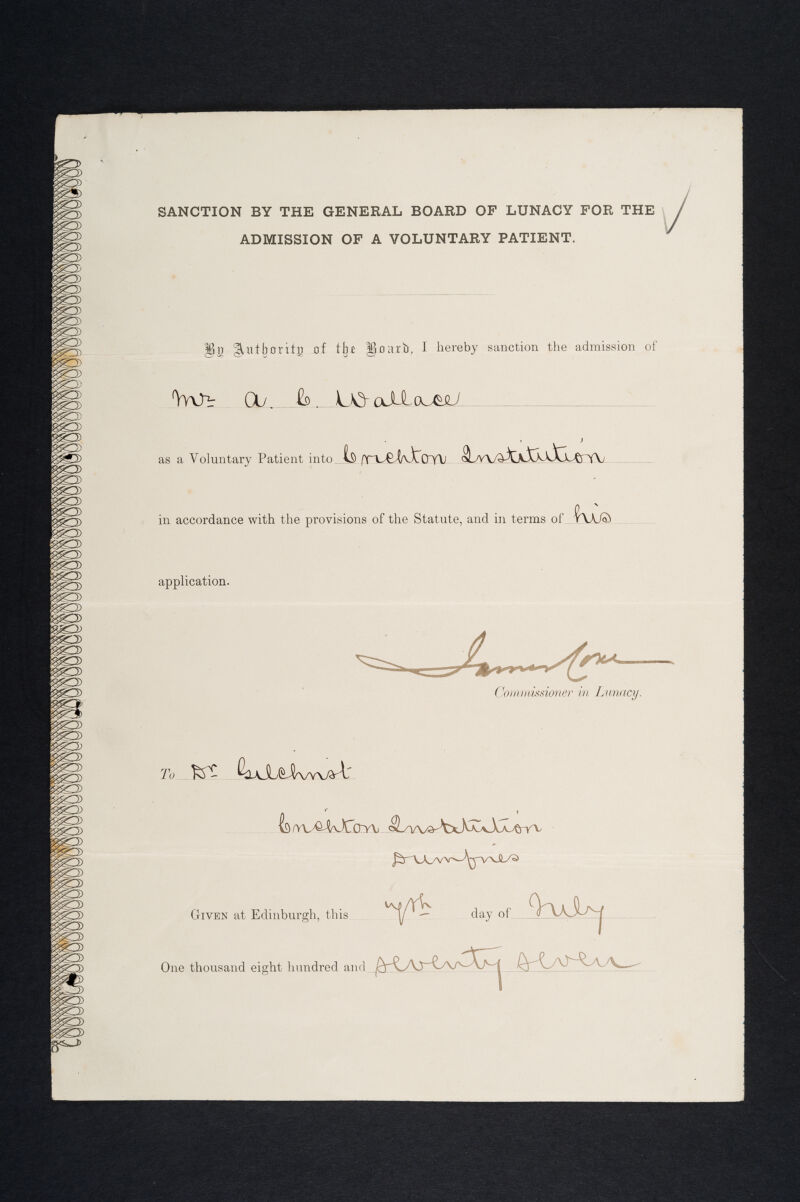 SANCTION BY THE GENERAL BOARD OF LUNACY FOR THE
ADMISSION OF A VOLUNTARY PATIENT.
By Authority of the Board, I hereby sanction the admission of
Mr A. C. Wallace
as a Voluntary Patient into Crichton Institution
in accordance with the provisions of the Statute, and in terms of his
application.
James Coxe
Commissioner in Lunacy.
To Dr Gilchrist
Crichton Institution
Dumfries
GIVEN at Edinburgh, this 7th day of July
One thousand eight hundred and seventy seven